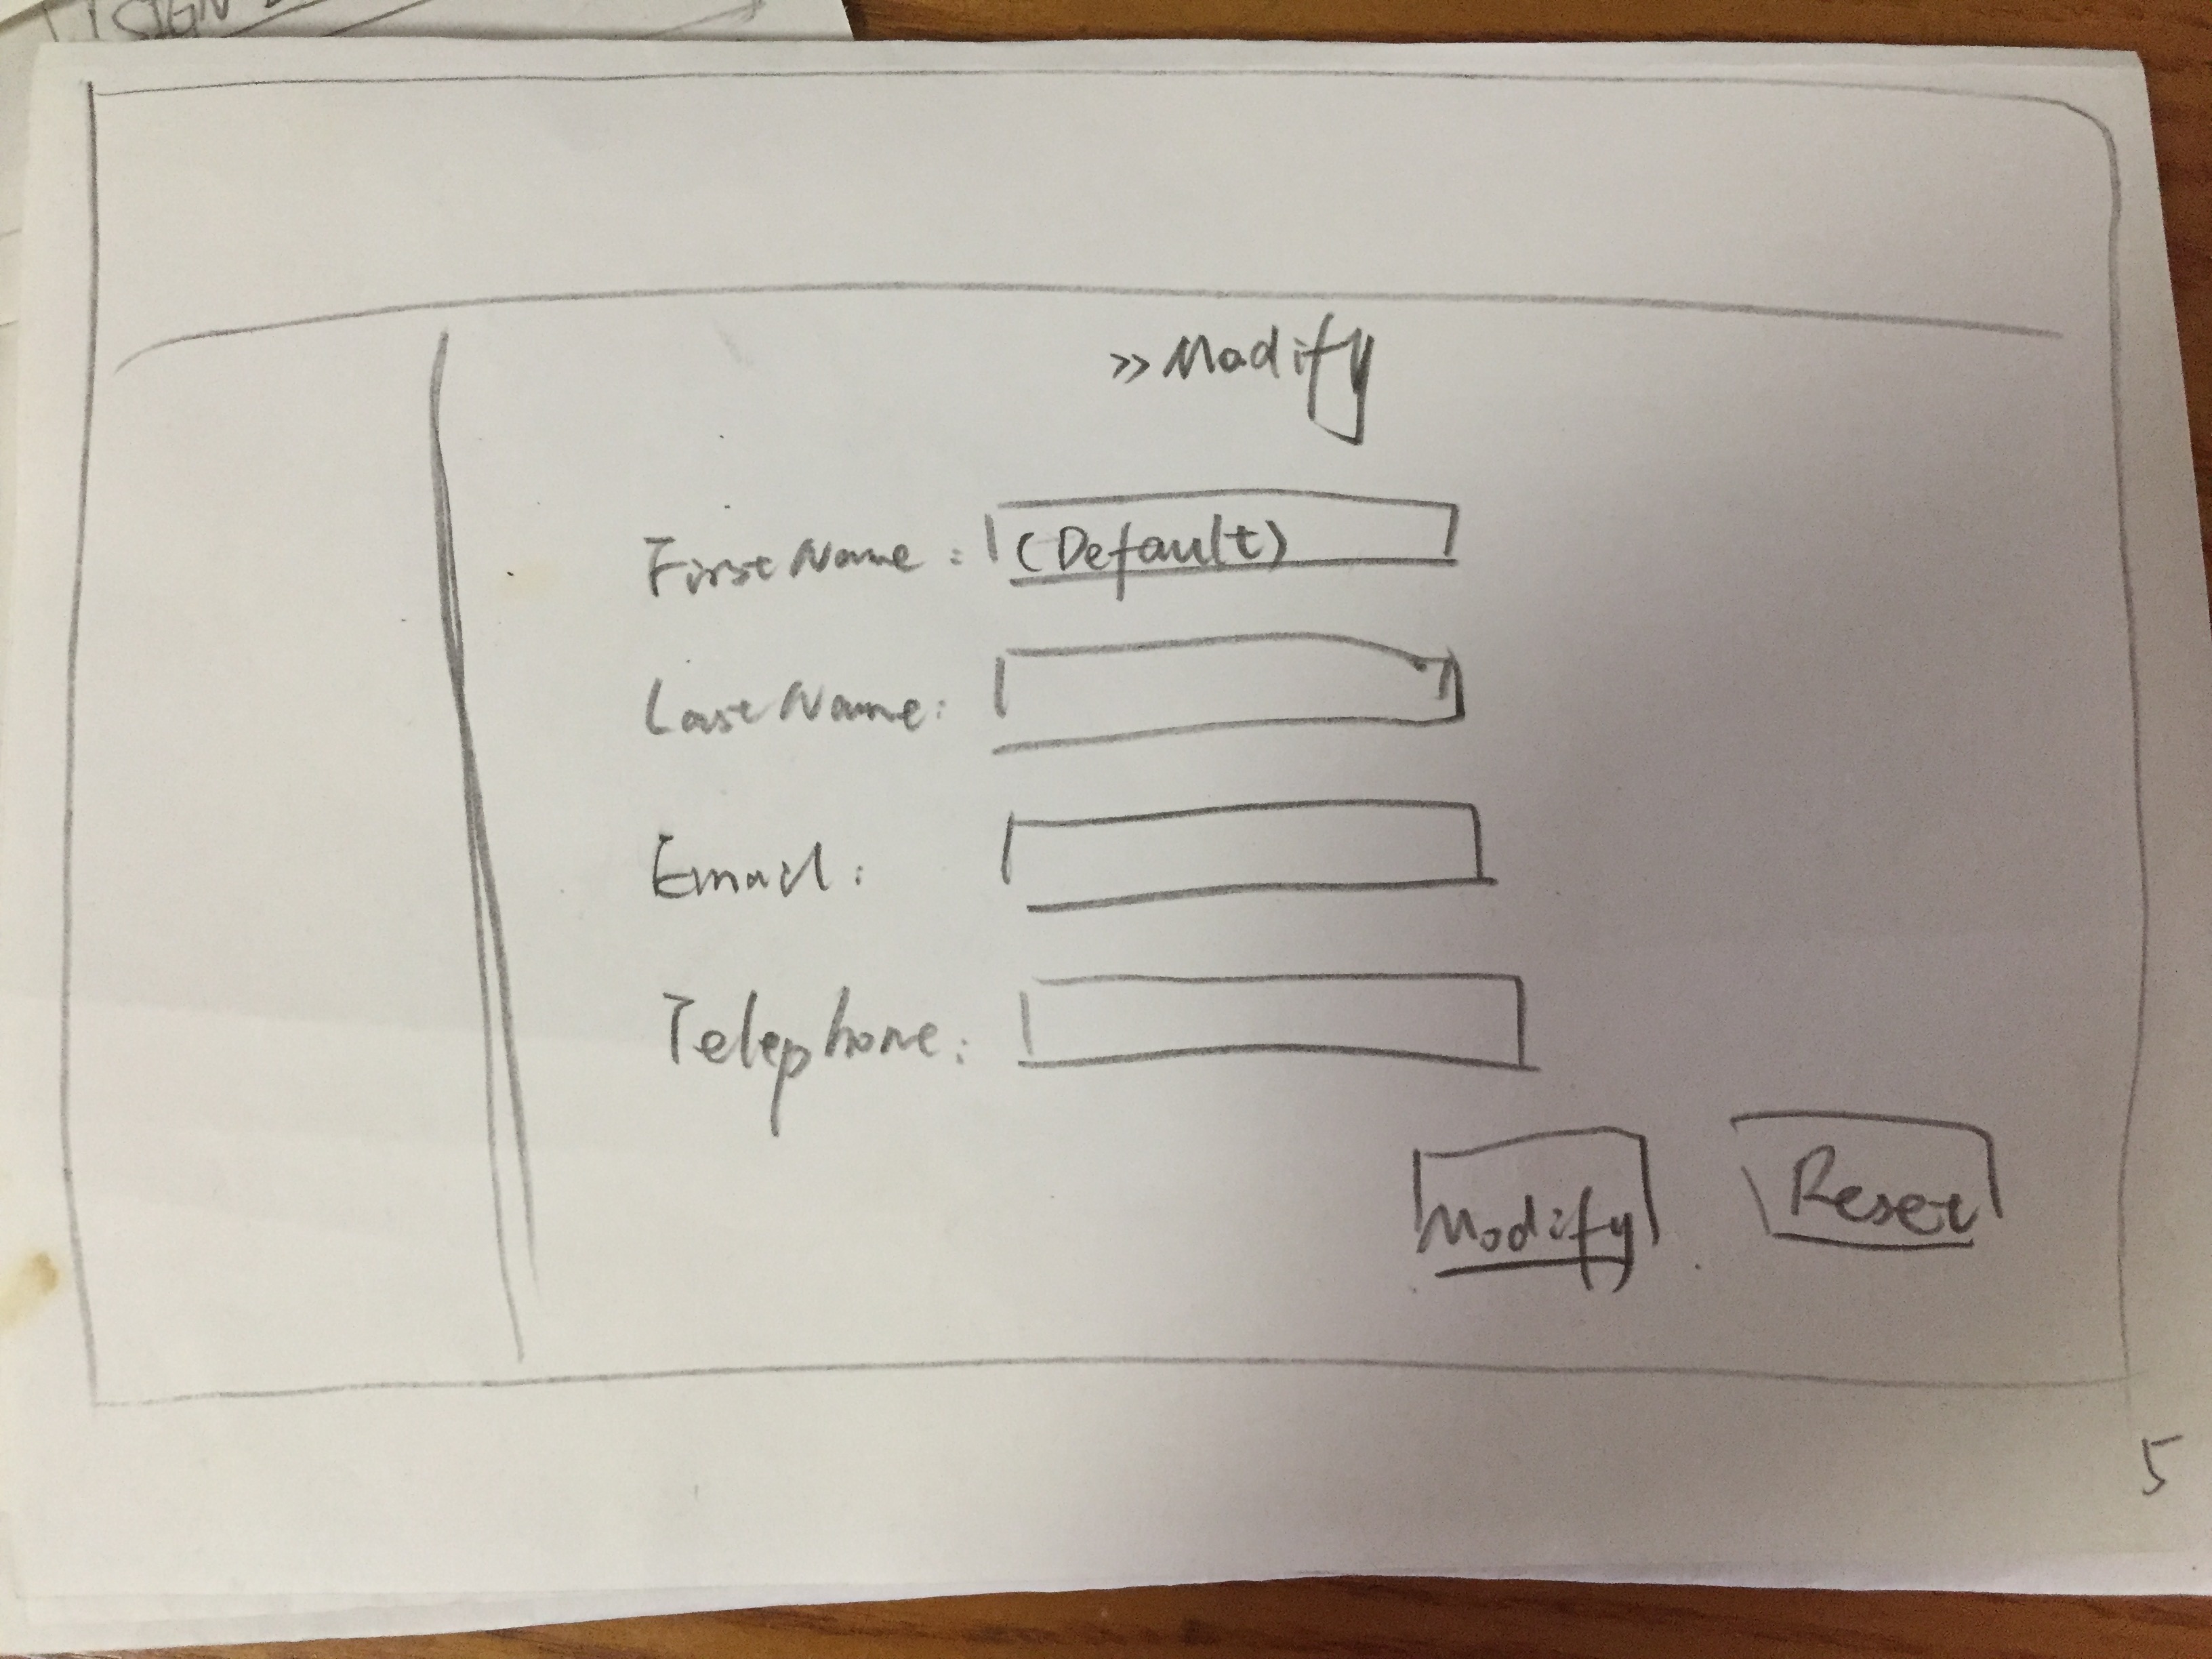 SIGN
>> Modify
First Name : (Default)
Last Name :
Email :
Telephone :
Modify Reset
5